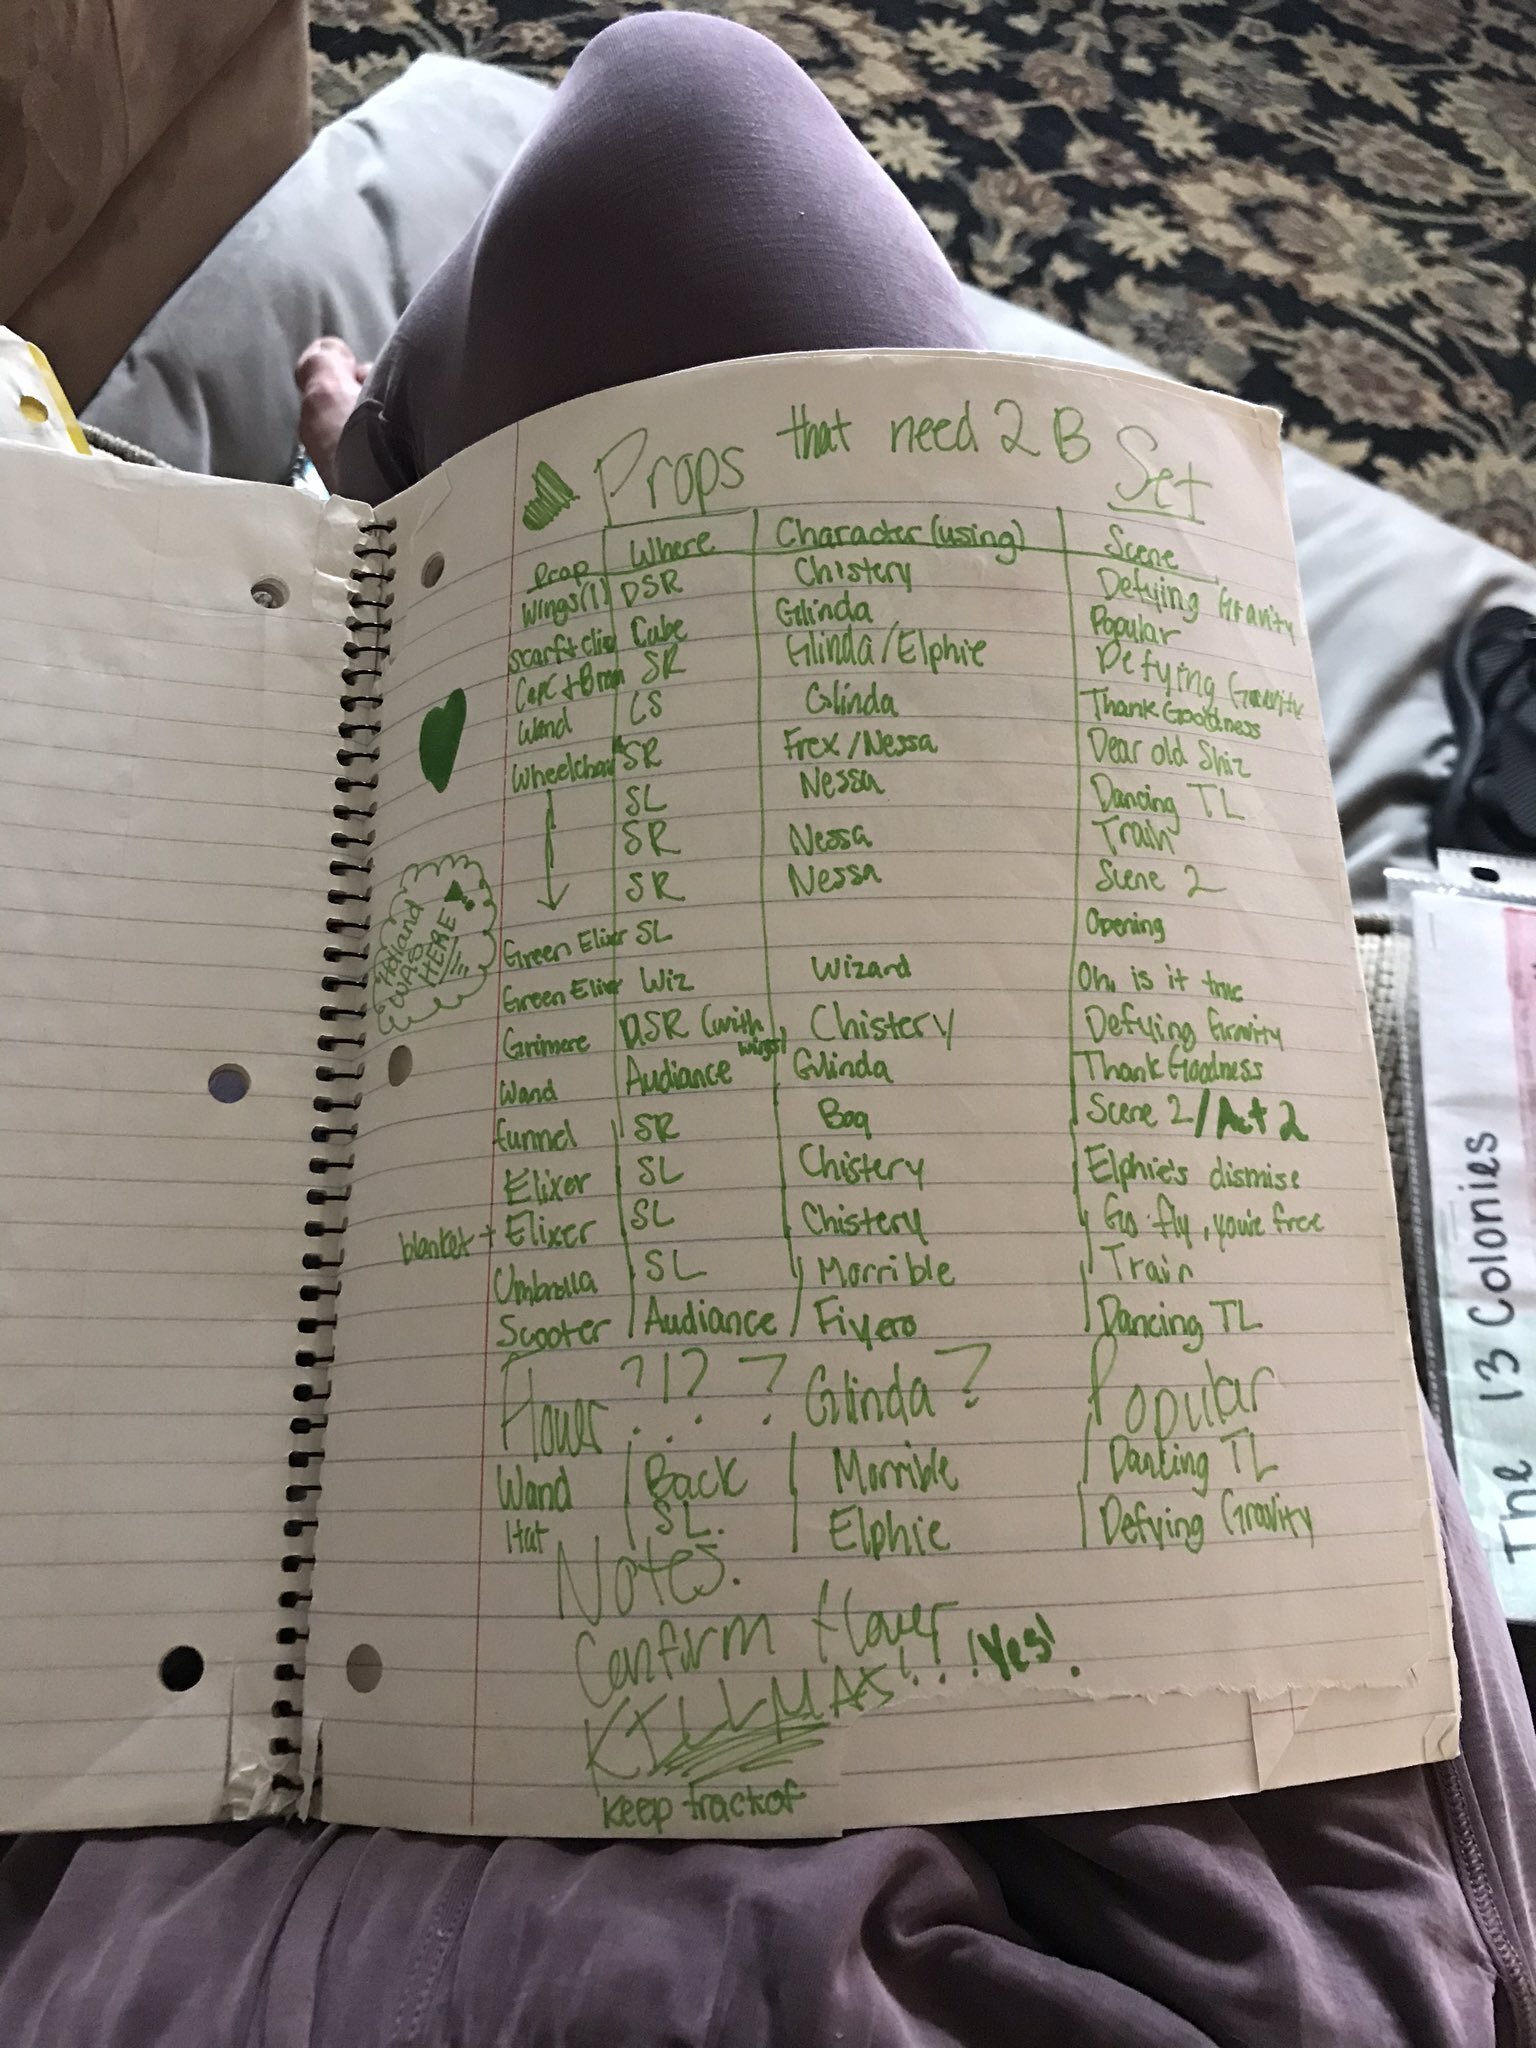 Props that need 2 B Set
Prop Where Character (using) Scene
Wings (1) DSR Chistery Defying Gravity
Scarf + clip Cube Glinda Popular
Cape + Broom SR Glinda/Elphie Defying Gravity
Wand CS Glinda Thank Goodness
Wheelchair SR Frex/Nessa Dear old Shiz
SL Nessa Dancing TL
SR Nessa Train
SR Nessa Scene 2
Green Elixer SL Opening
Green Elixer Wiz Wizard Oh, is it true
Grimere DSR (with wings) Chistery Defying Gravity
Wand Audiance Glinda Thank Goodness
funnel SR Boq Scene 2/Act 2
Elixer SL Chistery Elphie's dismise
blanket + Elixer SL Chistery Go fly, you're free
Umbrolla SL Morrible Train
Scooter Audiance Fiyero Dancing TL
Flower ?!? ? Glinda? Popular
Wand Back Morrible Dancing TL
Hat SL. Elphie Defying Gravity
Notes.
Confirm flower
KILLMAS!!! Yes!.
keep track of
Holland
WAS
HERE!
The 13 Colonies